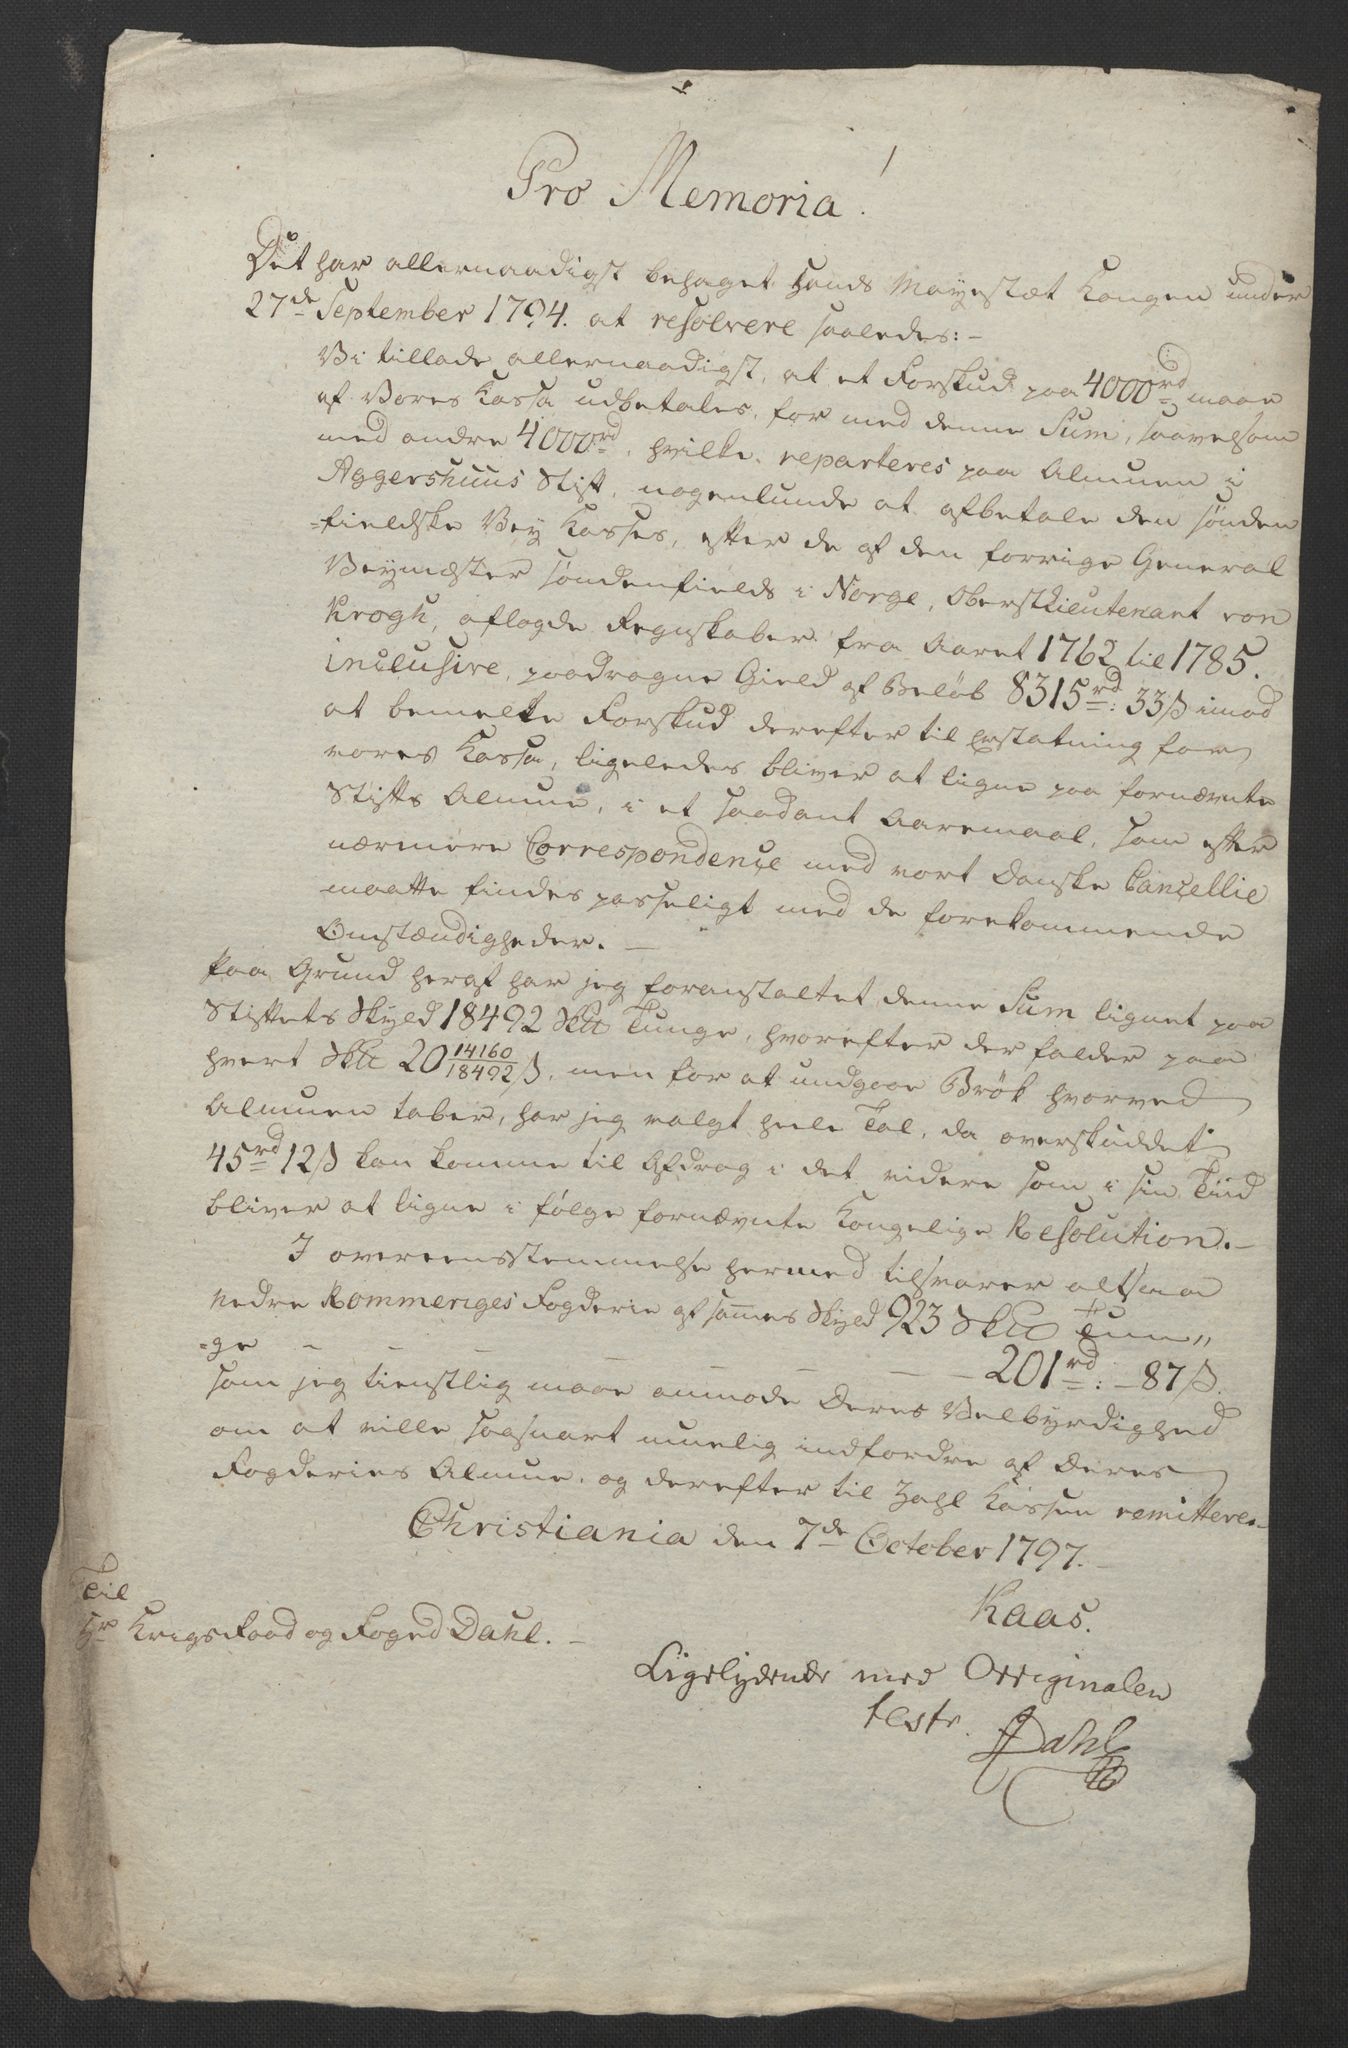 Pro Memoria!
Det har allernaadigst behaget Hands Mayestæt Kongen under
27de September 1794. at resolvere saaledes: -
Vi tillade allernaadigst, at et Forskud paa 4000rd maae
af Vores Kassa udbetales, for med denne Sum, saavelsom
med andre 4000rd, hvilke reparteres paa Almuen i
Aggershuus Stift, nogenlunde at afbetale den sønden
=fieldske Vey Kasses, efter de af den forrige General
Veymæster søndenfields i Norge, Oberstlieutenant von
Krogh, aflagde Regnskaber fra Aaret 1762 til 1785.
inclusive, paadragne Gield af Beløb 8315rd: 33 ß imod
at bemelte Forskud derefter til Erstatning for
vores Kassa, ligeledes bliver at ligne paa fornævnte
Stifts Almue, i et saadant Aaremaal, som efter
nærmere Correspondence med vort Danske Cancellie
maatte findes passeligt med de forekommende
Omstændigheder. -
Paa Grund heraf har jeg foranstaltet denne Sum lignet paa
Stiftets Skyld 18492 Skll Tunge, hvorefter der falder paa
hvert Skll 20 14160/18492 ß, men for at undgaae Brøk hvorved
Almuen taber, har jeg valgt heele Tal, da overskuddet
45rd 12 ß kan komme til Afdrag i det videre som i sin Tiid
bliver at ligne i følge fornævnte Kongelige Resolution. -
I overeensstemmelse hermed tilsvarer altsaa
Nedre Rommeriges Fogderie af sammes Skyld 923 Skll Tun„
=ge - - - - - - - 201rd: - 87 ß.
som jeg tienstlig maae anmode Deres Velbyrdighed
om at ville sagsnart muelig indfordre af Deres
Fogderies Almue, og derefter til Zahl Kassen remittere. -
Christiania den 7de October 1797. -
Kaas.
Til
Hr Krigsraad og Foged Dahl. -
Ligelydende med Orriginalen
testr.
Dahl